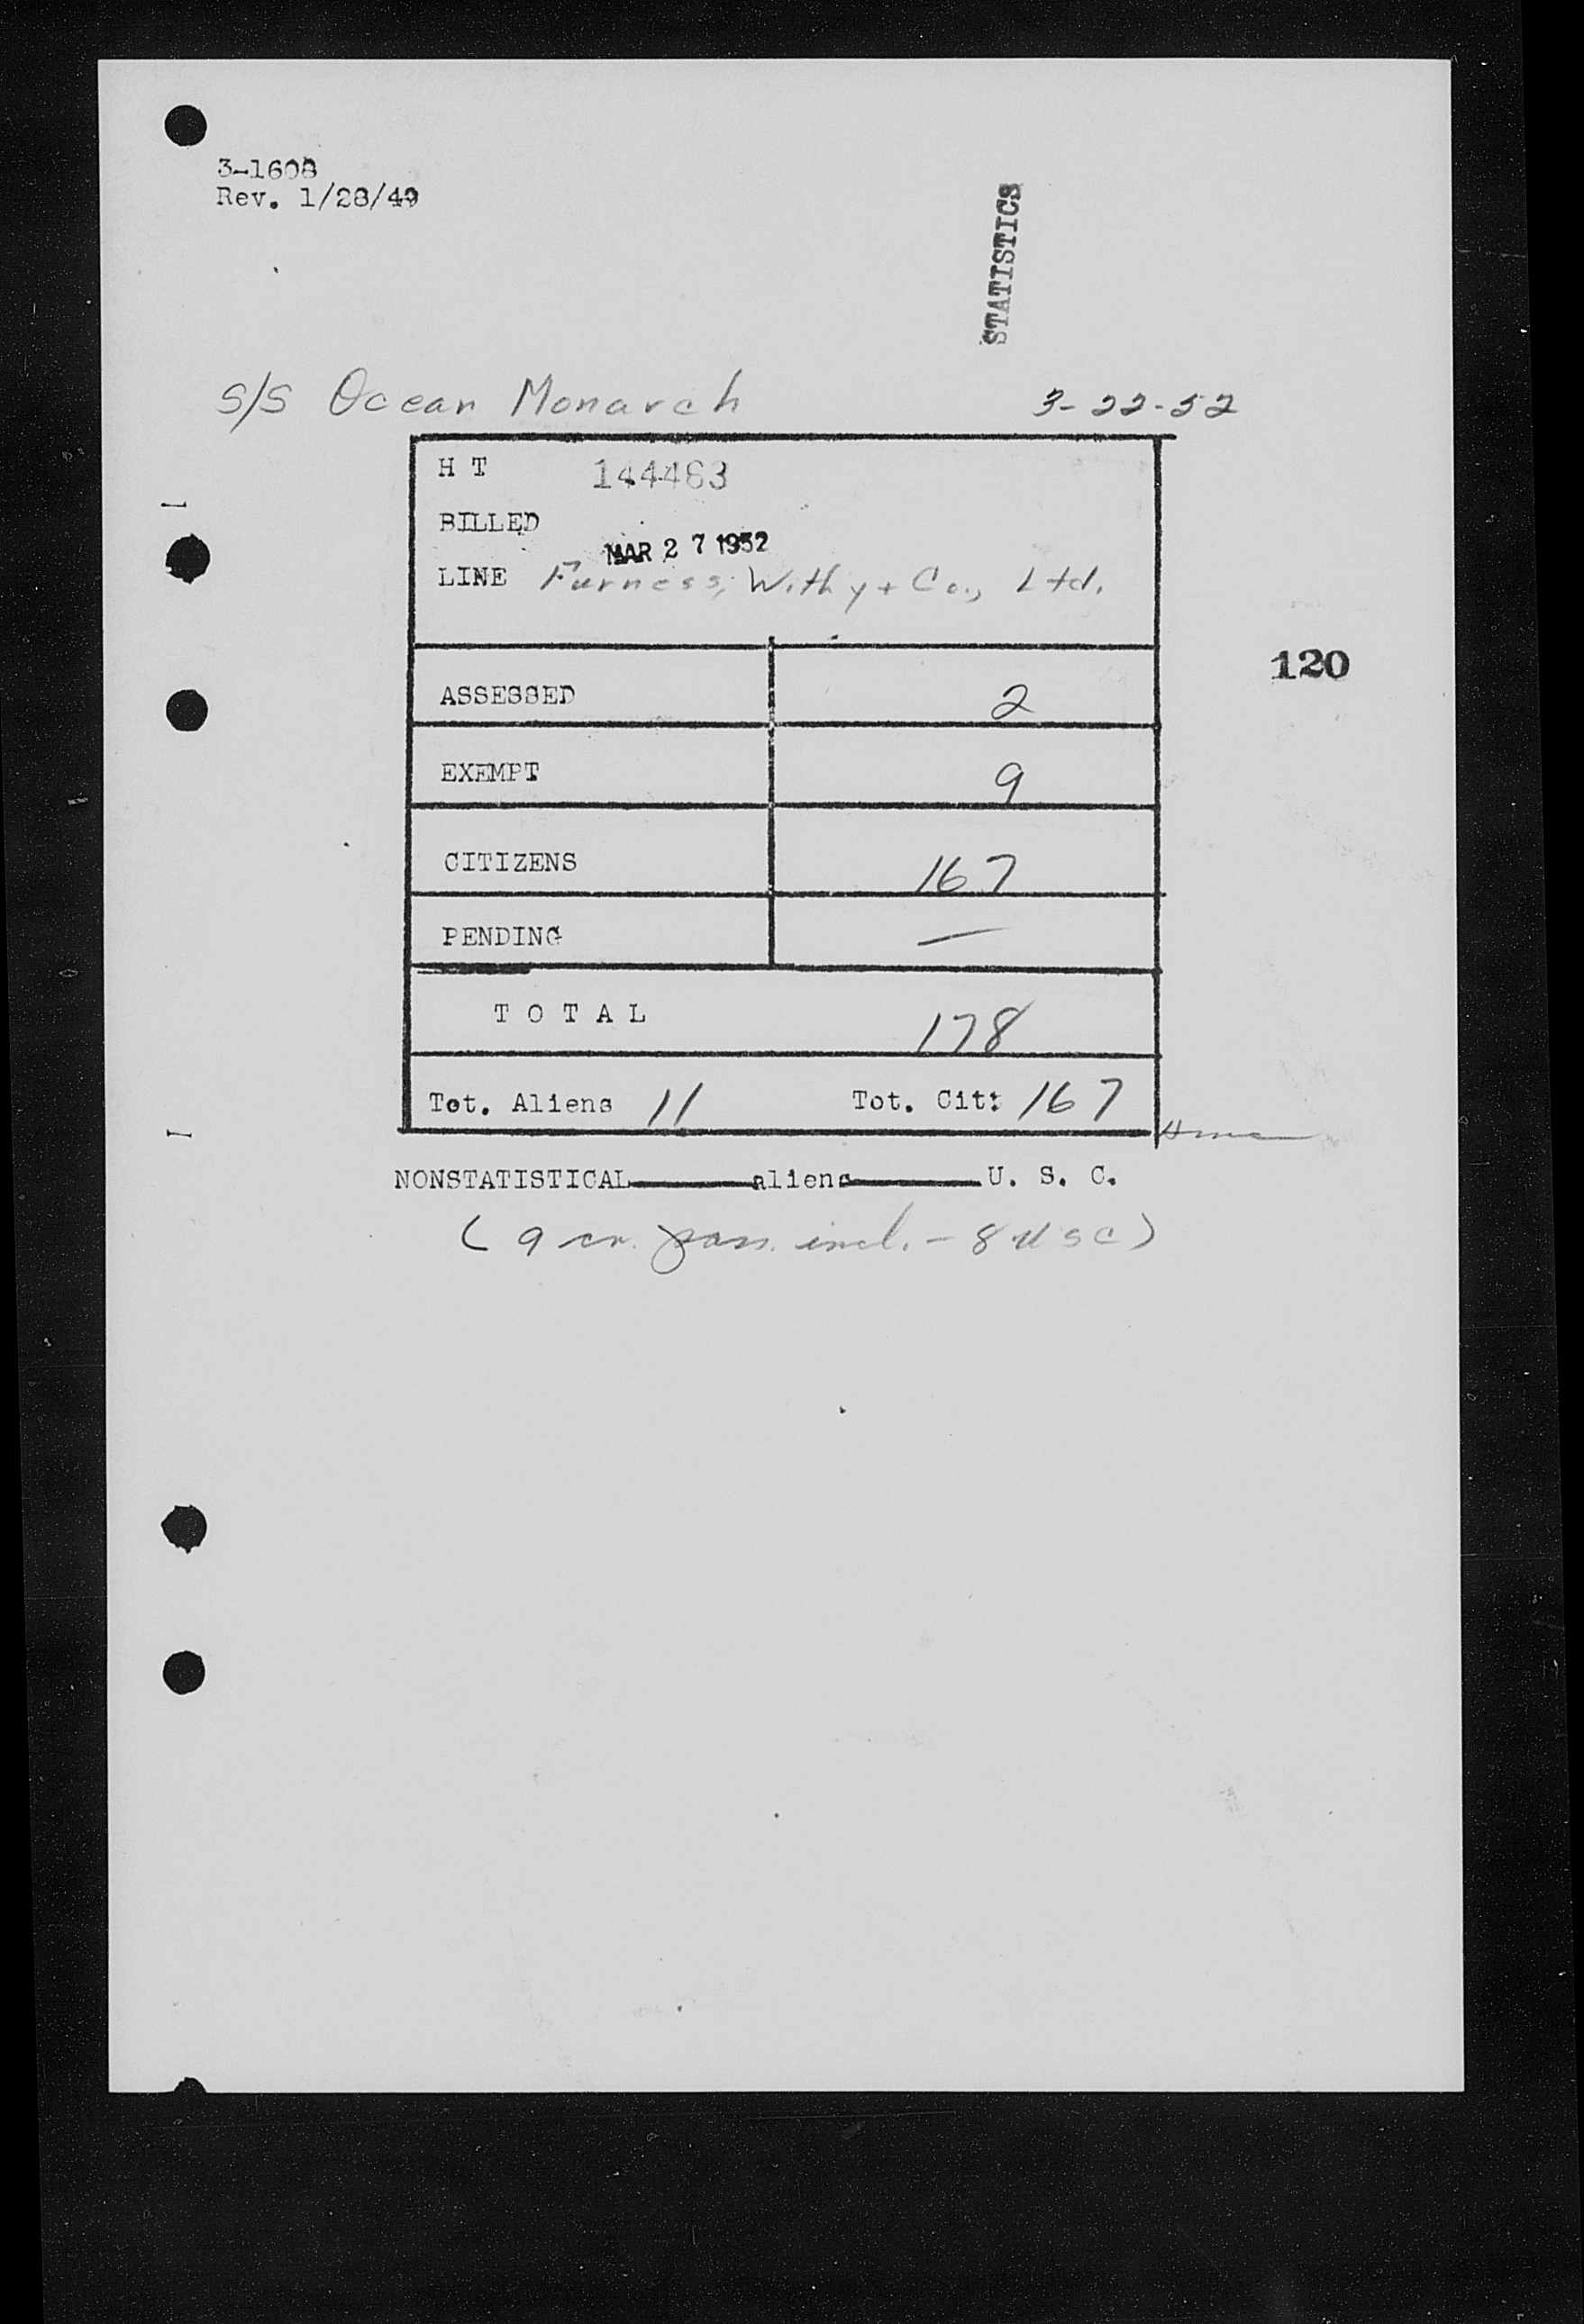 3-1608
Rev. 1/28/49
STATISTICS
S/S Ocean Monarch 3-22-52
H T 144463
BILLED
MAR 27 1952
LINE Furness, Withy + Co., Ltd.
120
ASSESSED 2
EXEMPT 9
CITIZENS 167
PENDING —
T O T A L 178
Tot. Aliens 11 Tot. Cit: 167
NONSTATISTICAL aliens U. S. C.
( 9 cr. pass. incl. - 8 USC )